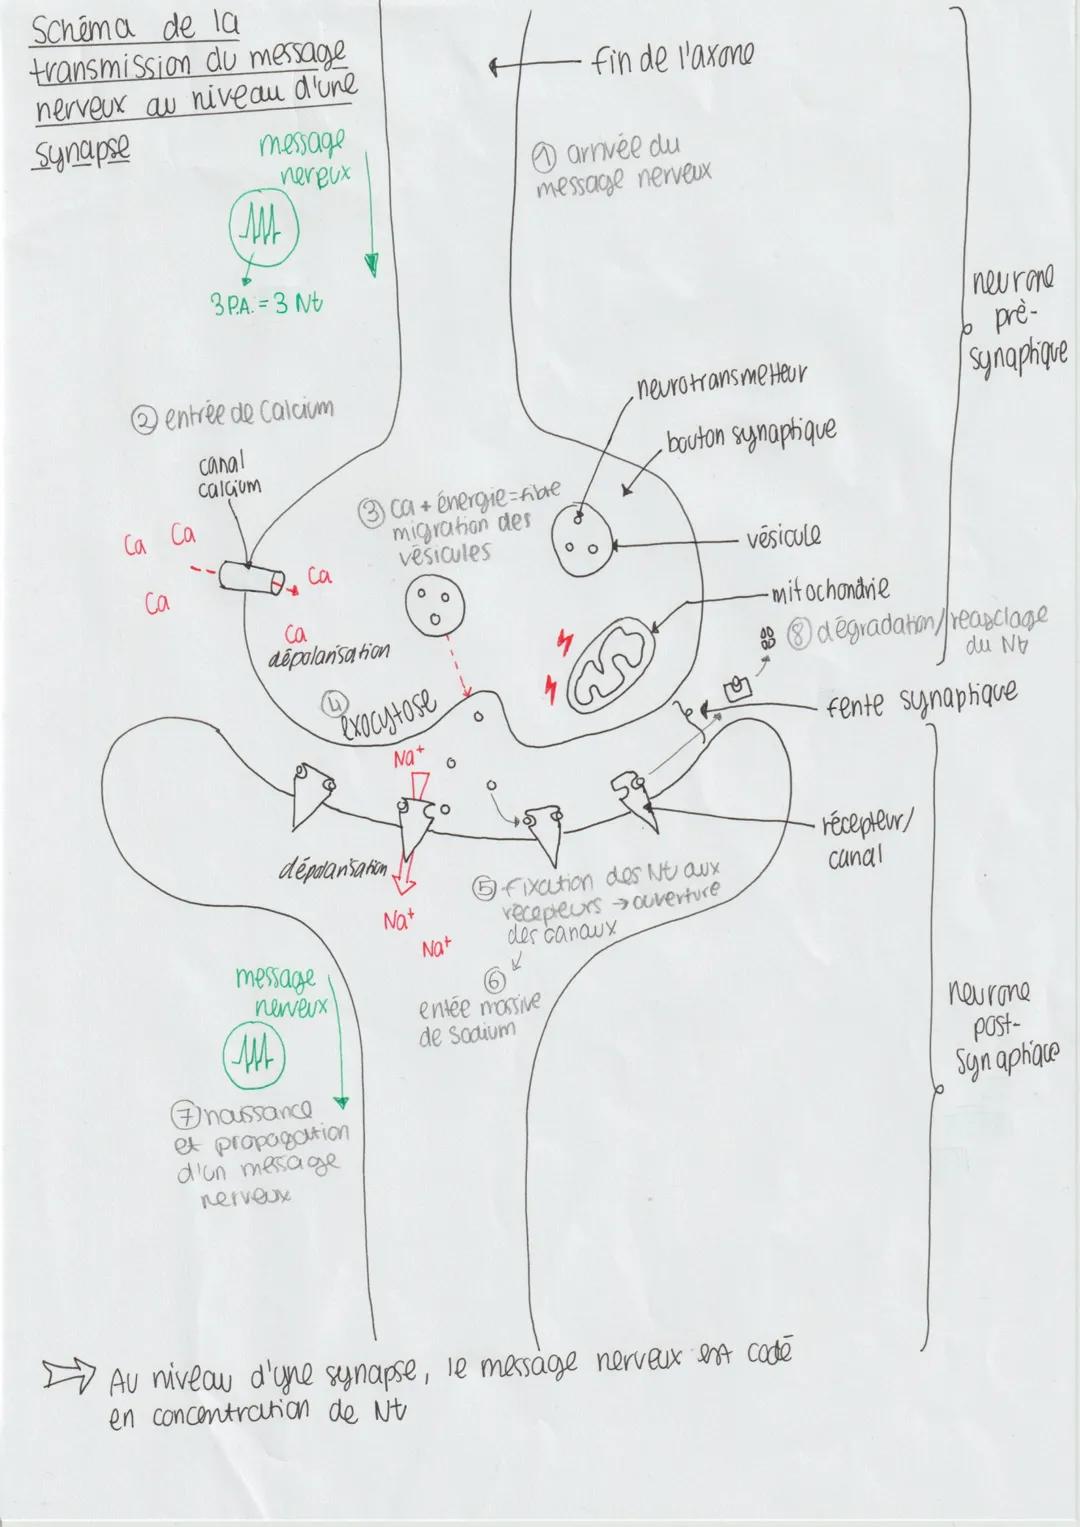 Schéma de la
transmission du message
nerveux au niveau d'une
synapse
fin de l'axone
message
nerveux
① arrivée du
message nerveux
3 P.A. = 3 Nt
neurone
prè-
synaptique
neurotransmetteur
② entrée de Calcium
bouton synaptique
canal
calcium
③ Ca + énergie = fibre
migration des
vésicules
Ca
Ca
Ca
Ca
Ca
vésicule
mitochondrie
dépolarisation
⑧ dégradation/reasclage
du Nt
④
exocytose
fente synaptique
Na+
récepteur/
canal
dépolarisation
⑤ fixation des Nt aux
récepteurs → ouverture
des canaux
Na+
Na+
⑥
entée massive
de Sodium
message
nerveux
neurone
post-
synaptique
⑦ naissance
et propagation
d'un message
nerveux
⇒ Au niveau d'une synapse, le message nerveux est codé
en concentration de Nt